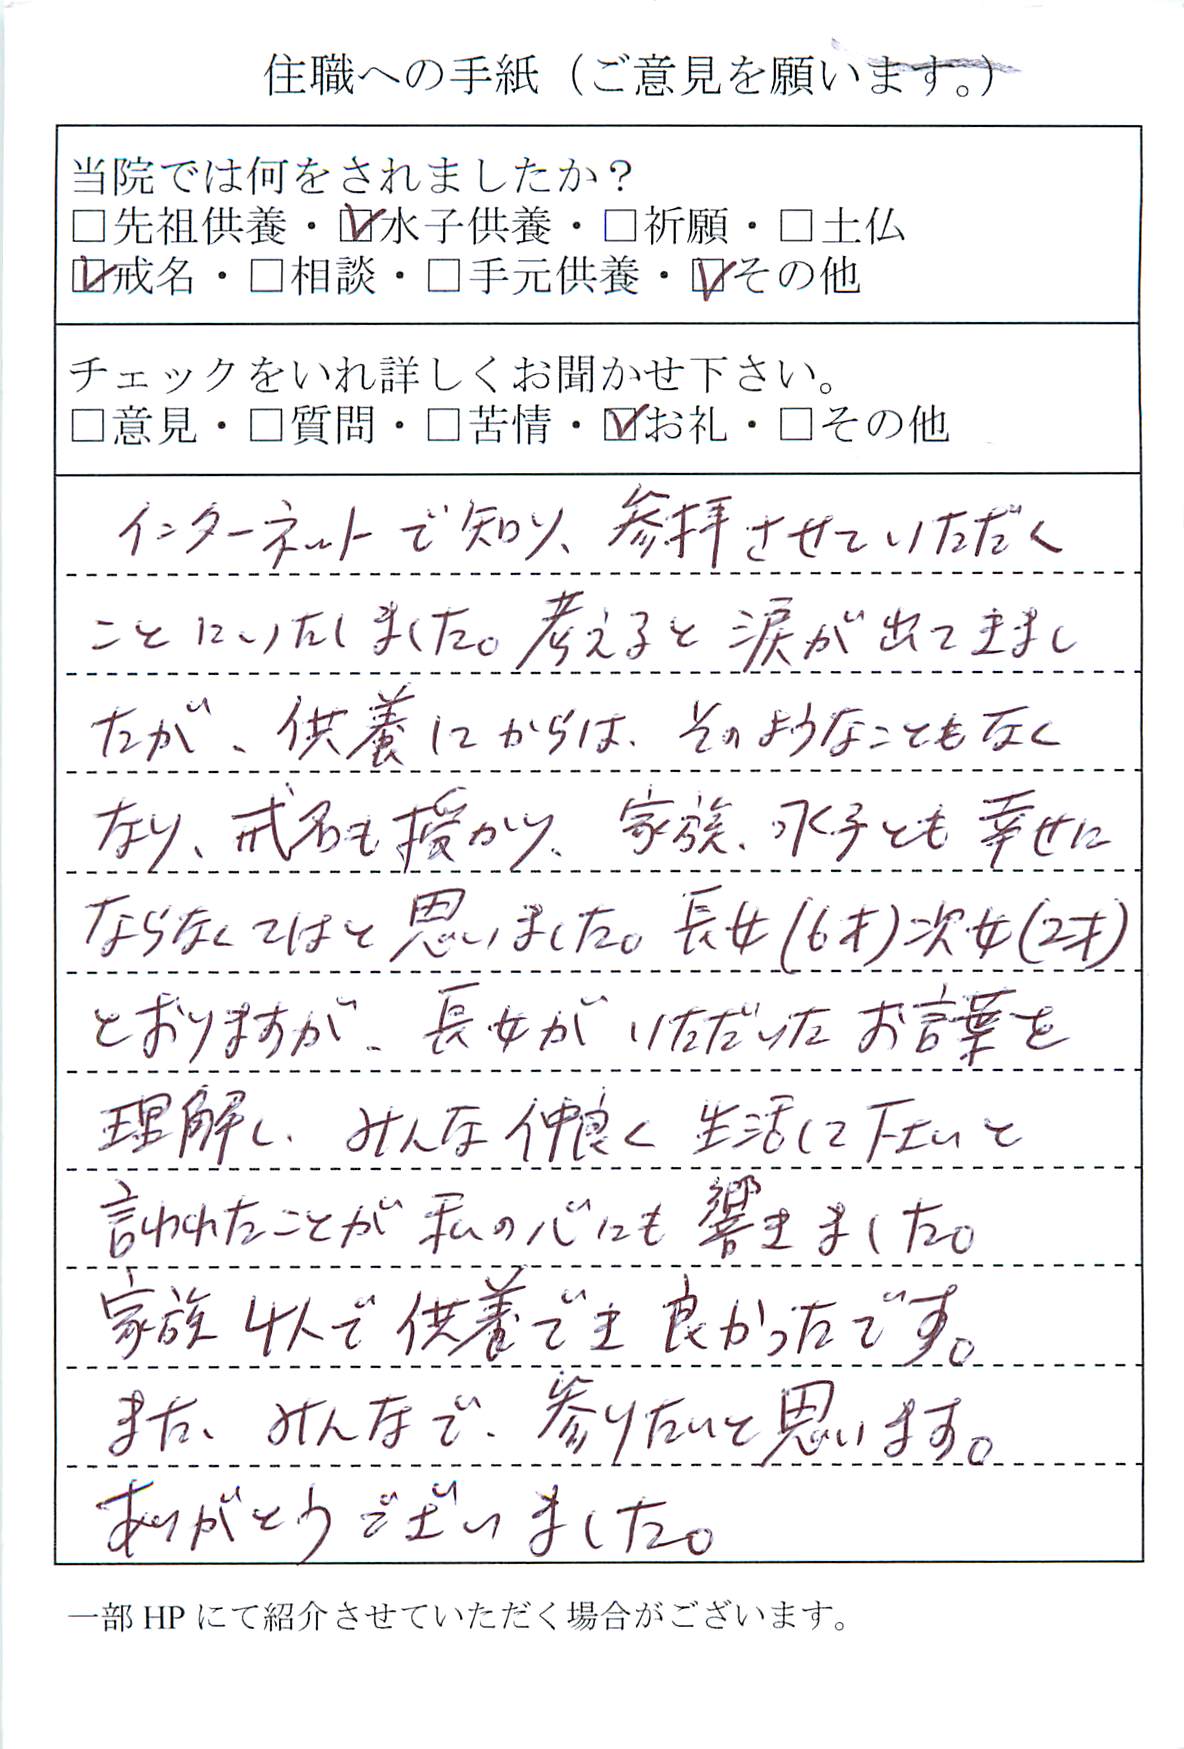 住職への手紙（ご意見を願います。）
当院では何をされましたか？
□先祖供養・☑水子供養・□祈願・□土仏
☑戒名・□相談・□手元供養・☑その他
チェックをいれ詳しくお聞かせ下さい。
□意見・□質問・□苦情・☑お礼・□その他
インターネットで知り、参拝させていただく
ことにいたしました。考えると涙が出てきまし
たが、供養にからは、そのようなこともなく
なり、戒名も授かり、家族、水子とも幸せに
ならなくてはと思いました。長女(6才)次女(2才)
とおりますが、長女がいただいたお言葉を
理解し、みんな仲良く生活して下さいと
言われたことが私の心にも響きました。
家族4人で供養でき良かったです。
また、みんなで、参りたいと思います。
ありがとうございました。
一部HPにて紹介させていただく場合がございます。